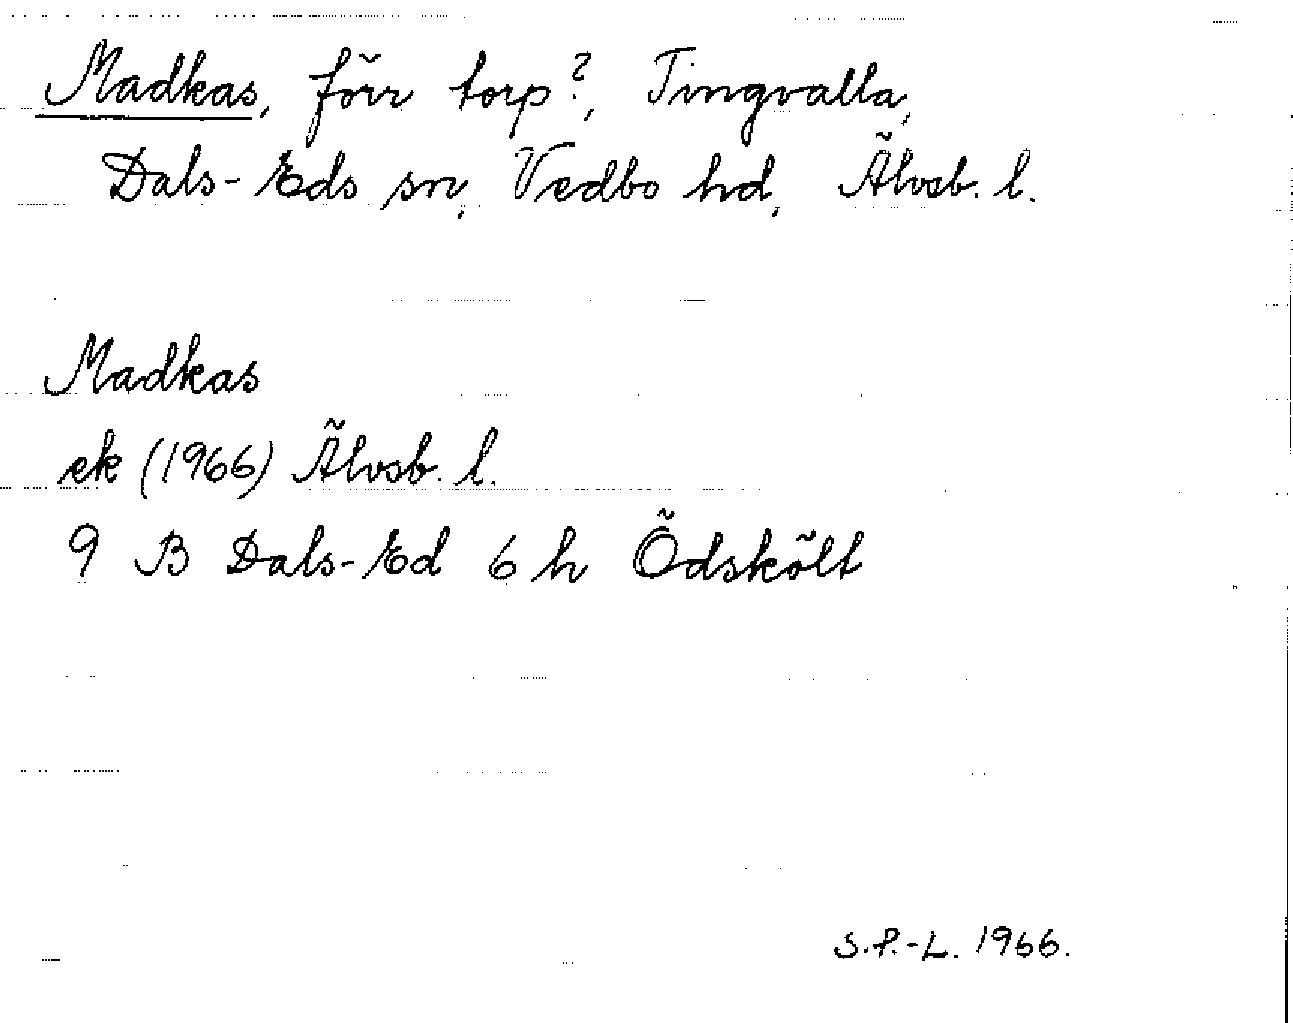 Madkas, förr torp?, Tingvalla,
Dals-Eds sn, Vedbo hd, Älvsb. l.
Madkas
ek (1966) Älvsb. l.
9 B Dals-Ed 6 h Ödskölt
S.P.-L. 1966.